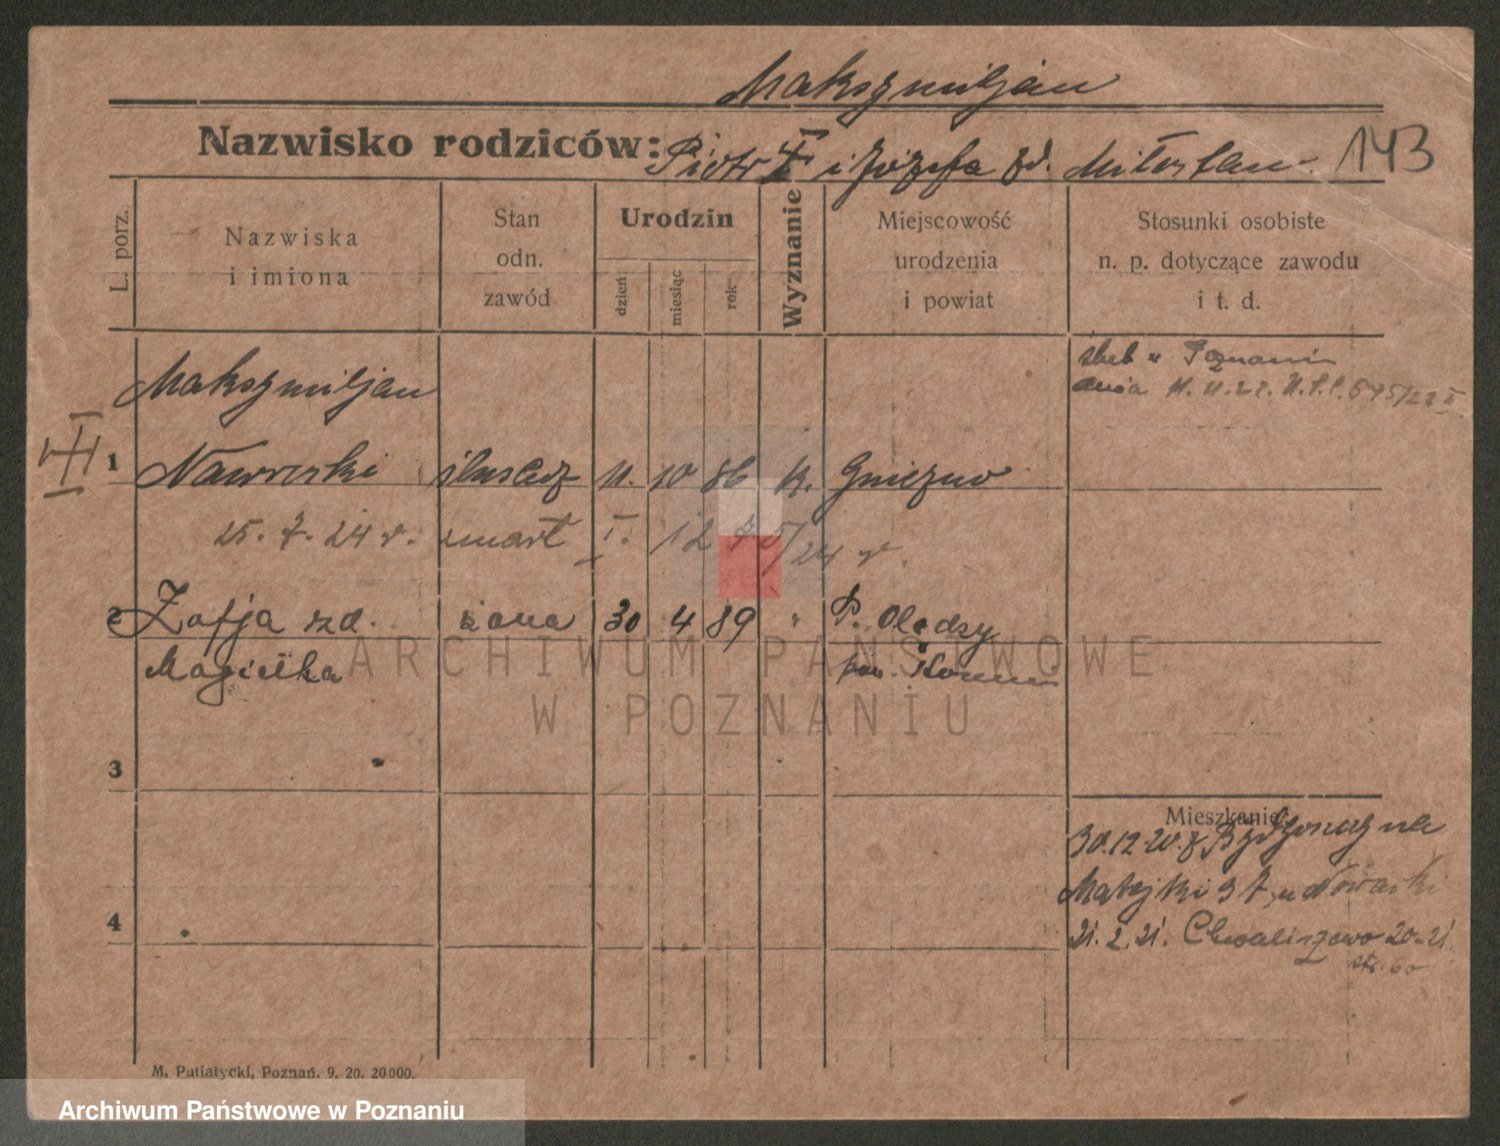 Maksymiljan
Nazwisko rodziców: Piotr i Józefa zd. 143
L. porz.
Nazwiska
i imiona
Stan
odn.
zawód
Urodzin
dzień
miesiąc
rok
Wyznanie
Miejscowość
urodzenia
i powiat
Stosunki osobiste
n. p. dotyczące zawodu
i t. d.
ślub w Poznaniu
dnia
Maksymiljan
1 Nawrocki ślusarz 11. 10 86 k. Gniezno
25. 7. 24 r. zmarł I. 12 /24 r.
2 Zofja zd. żona 30 4 89 " P. Olędzy
Magielka pow.
3
Mieszkanie
30.12.20. z Bydgoszczy na
Matejki
4
21. 2. 21. Chwaliszewo 20-21
str. 60
M. Putiatycki, Poznań. 9. 20. 20000.
ARCHIWUM PAŃSTWOWE
W POZNANIU
Archiwum Państwowe w Poznaniu